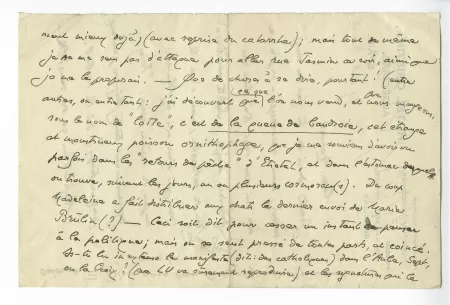 ment mieux déjà) (avec reprise du catarrhe) ; mais tout de même
je ne me sens pas d'attaque pour aller rue Jasmin ce soir, ainsi que
je me le proposais. — Que de choses à se dire, pourtant ! (entre
autres, ou entre tant : j'ai découvert que ce que l'on nous vend, et que nous mangeons,
sous le nom de "lotte", c'est de la queue de baudroie, cet étrange
et monstrueux poisson ornithophage, que je me souviens d'avoir vu
parfois dans les "retours de pêche" d'Etretat, et dans l'estomac duquel
on trouve, suivant les jours, un ou plusieurs cormorans). Du coup
Madeleine a fait distribuer aux chats le dernier envoi de Marie
(?) — Ceci soit dit pour cesser un instant de penser
à la politique ; mais on se sent pressé de toutes parts, et coincé.
As-tu lu in extenso les manifestes (dit : des catholiques) dans l'Aube, Sept,
ou la Croix ? (que LU va sûrement reproduire) et les signatures qui le